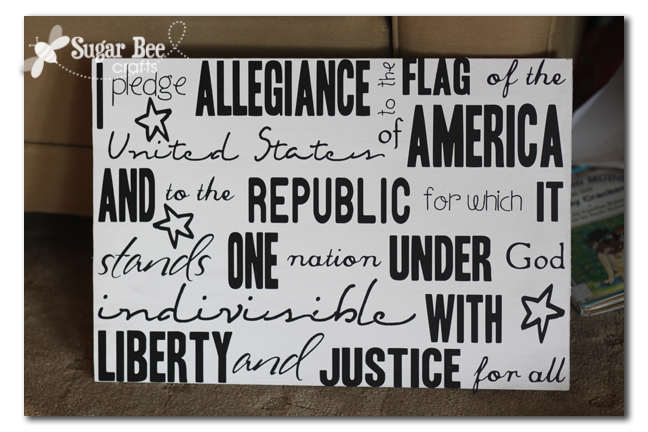 Sugar Bee
crafts
I pledge ALLEGIANCE to the FLAG of the
United States of AMERICA
AND to the REPUBLIC for which IT
stands ONE nation UNDER God
indiviusible WITH
LIBERTY and JUSTICE for all